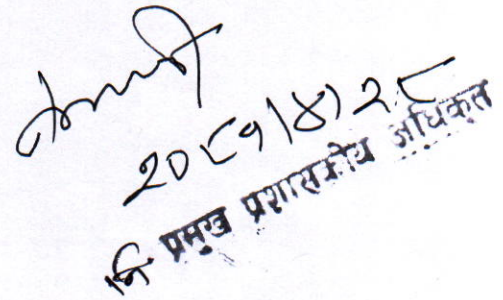 २०८१।४।२८
नि प्रमुख प्रशासकीय अधिकृत